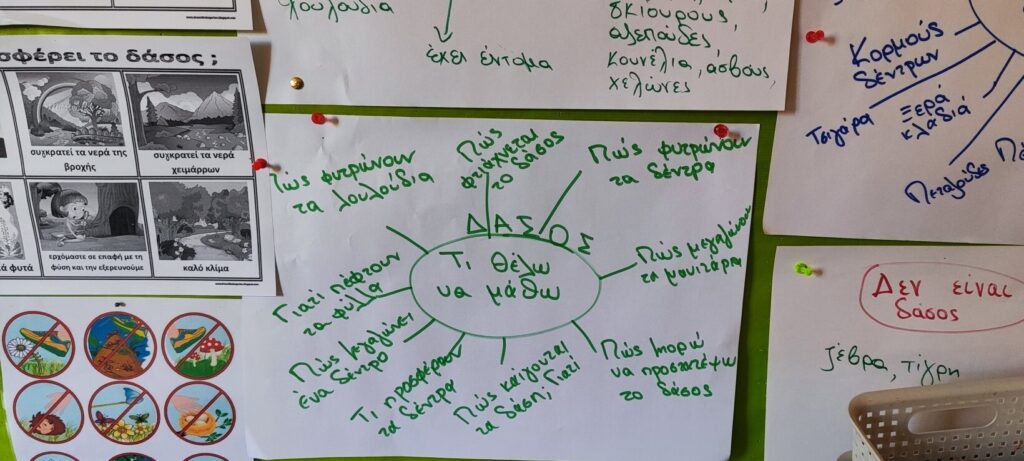 λουλούδια
έχει έντομα
σκίουρους,
αλεπούδες,
κουνέλια, ασβούς,
χελώνες
Κορμούς
δέντρων
Ξερά
κλαδιά
Πεταλούδες
σφέρει το δάσος ;
συγκρατεί τα νερά της
βροχής
συγκρατεί τα νερά
χειμάρρων
ερχόμαστε σε επαφή με τη
φύση και την εξερευνούμε
καλό κλίμα
φυτά
Πώς φυτρώνουν
τα λουλούδια
Πώς
φτιάχνεται
το δάσος
Πώς φυτρώνουν
τα δέντρα
ΔΑΣΟΣ
Τι θέλω
να μάθω
Πώς μεγαλώνουν
τα μανιτάρια
Γιατί πέφτουν
τα φύλλα
Πώς μεγαλώνει
ένα δέντρο
Τι προσφέρουν
τα δέντρα
Πώς καίγονται
τα δάση; Γιατί
Πώς μπορώ
να προστατέψω
το δάσος
Δεν είναι
δάσος
ζέβρα, τίγρη